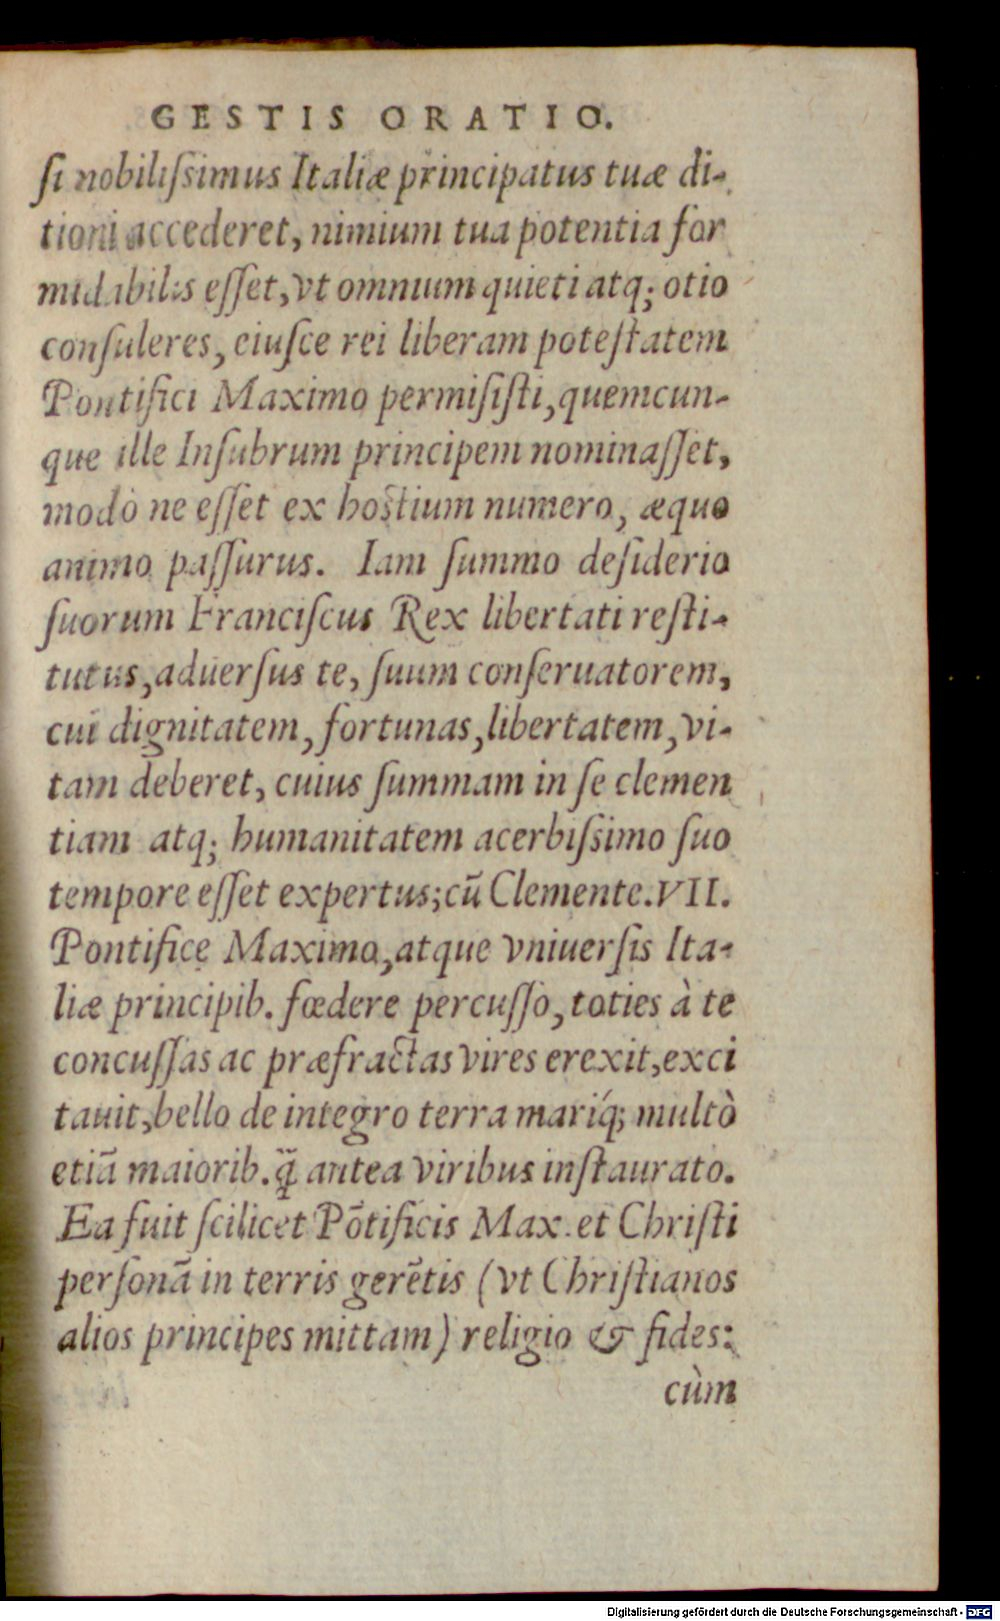 GESTIS ORATIO.
si nobilissimus Italiæ principatus tuæ di-
tioni accederet, nimium tua potentia for
midabilis esset, vt omnium quieti atq; otio
consuleres, eiusce rei liberam potestatem
Pontifici Maximo permisisti, quemcun-
que ille Insubrum principem nominasset,
modò ne esset ex hostium numero, æquo
animo passurus. Iam summo desiderio
suorum Franciscus Rex libertati resti-
tutus, aduersus te, suum conseruatorem,
cui dignitatem, fortunas, libertatem, vi-
tam deberet, cuius summam in se clemen
tiam atq; humanitatem acerbissimo suo
tempore esset expertus; cū Clemente. VII.
Pontifice Maximo, atque vniuersis Ita-
liæ principib. fœdere percusso, toties à te
concussas ac præfractas vires erexit, exci
tauit, bello de integro terra mariq́; multò
etiā maiorib. q̃ antea viribus instaurato.
Ea fuit scilicet Pōtificis Max. et Christi
personā in terris gerētis (vt Christianos
alios principes mittam) religio & fides:
cùm
Digitalisierung gefördert durch die Deutsche Forschungsgemeinschaft - DFG